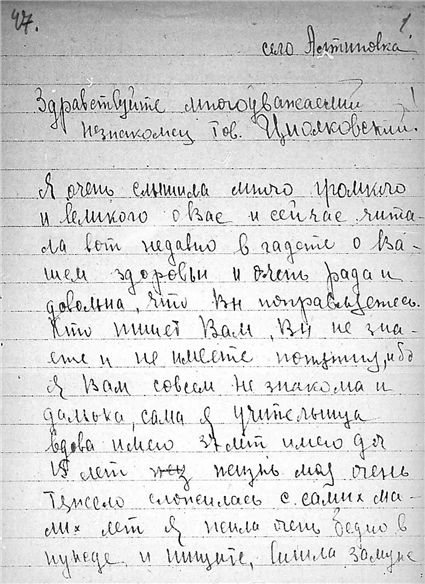 47.
1
село Алтиновка
Здравствуйте многоуважаемый
незнакомец тов. Циолковский!
Я очень слышила много громкого
и великого о Вас и сейчас чита-
ла вот недавно в газете о Ва-
шем здоровьи и очень рада и
довольна, что Вы поправляетесь.
Кто пишет Вам, Вы не зна-
ете и не имеете понятия, ибо
я Вам совсем не знакома и
далека, сама я учительница
вдова имею 37 лет имею
15 лет жизнь моя очень
тяжело сложилась с самих ма-
лих лет я жила очень бедно в
нужде и нищите, вишла замуж